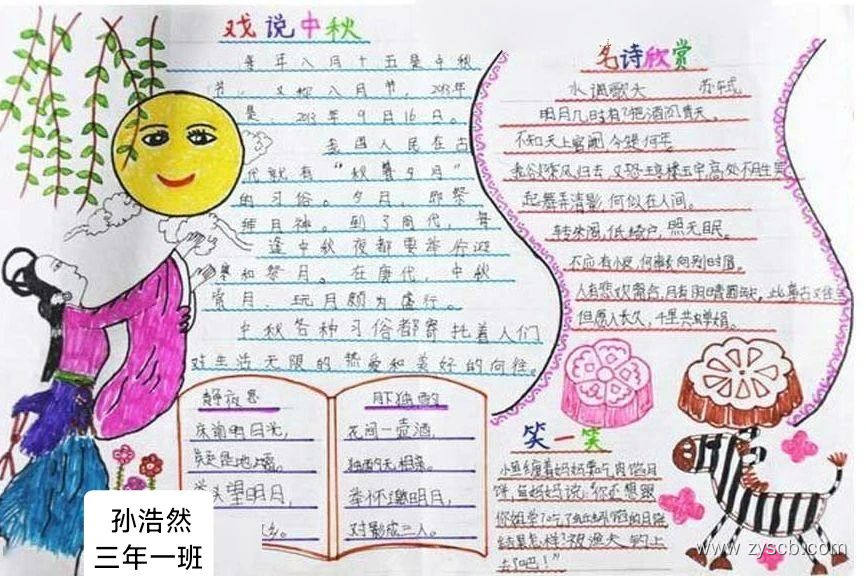 戏说中秋
每年八月十五是中秋
节，又称八月节，2013年
是 2013年9月16日。
我国人民在古
代就有“秋暮夕月”
的习俗。夕月，即祭
拜月神。到了周代，每
逢中秋夜都要举行迎
寒和祭月。在唐代，中秋
赏月、玩月颇为盛行。
中秋各种习俗都寄托着人们
对生活无限的热爱和美好的向往。
名诗欣赏
水调歌头 苏轼
明月几时有？把酒问青天。
不知天上宫阙，今夕是何年
我欲乘风归去，又恐琼楼玉宇高处不胜寒
起舞弄清影，何似在人间。
转朱阁，低绮户，照无眠。
不应有恨，何事长向别时圆。
人有悲欢离合，月有阴晴圆缺，此事古难全
但愿人长久，千里共婵娟。
静夜思
床前明月光，
疑是地上霜。
举头望明月，
乡。
月下独酌
花间一壶酒，
独酌无相亲。
举杯邀明月，
对影成三人。
笑一笑
小鱼缠着妈妈要吃肉馅月
饼，鱼妈妈说：“你还想跟
你姐学？吃了蚯蚓馅的月饼，
结果怎样？被渔夫钓上
去了吧！”
孙浩然
三年一班
www.zyscb.com